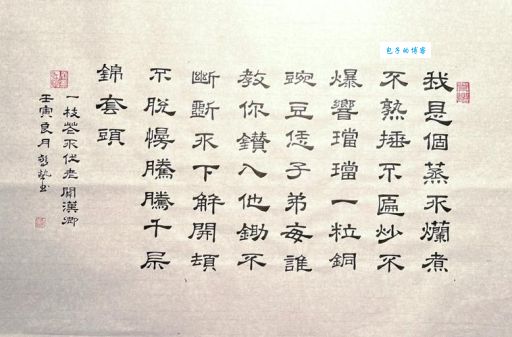 包子的博客
我是個蒸不爛煮
不熟捶不匾炒不
爆響璫璫一粒銅
豌豆恁子弟每誰
教你鑽入他鋤不
斷斲不下解開頓
不脫慢騰騰千層
錦套頭
一枝花不伏老關漢卿
壬寅良月書